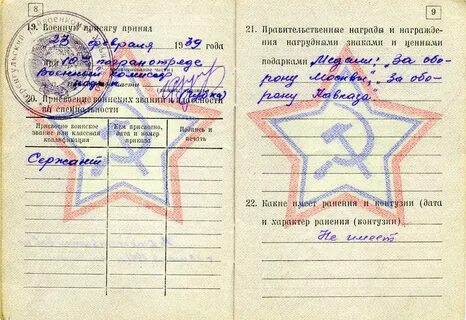 8
19. Военную присягу принял
23 февраля 1939 года
при 10м погранотряде
Военный комисар
подпись
20. Присвоение воинских званий и классности
по специальности
Присвоено воинское
звание или классная
квалификация
Кем присвоено,
дата и номер
приказа
Подпись и
печать
Сержант
9
21. Правительственные награды и награжде-
ния нагрудными знаками и ценными
подарками Медали: „За обо-
рону Москвы", „За обо-
рону Кавказа"
22. Какие имеет ранения и контузии (дата
и характер ранения (контузии)
Не имеет